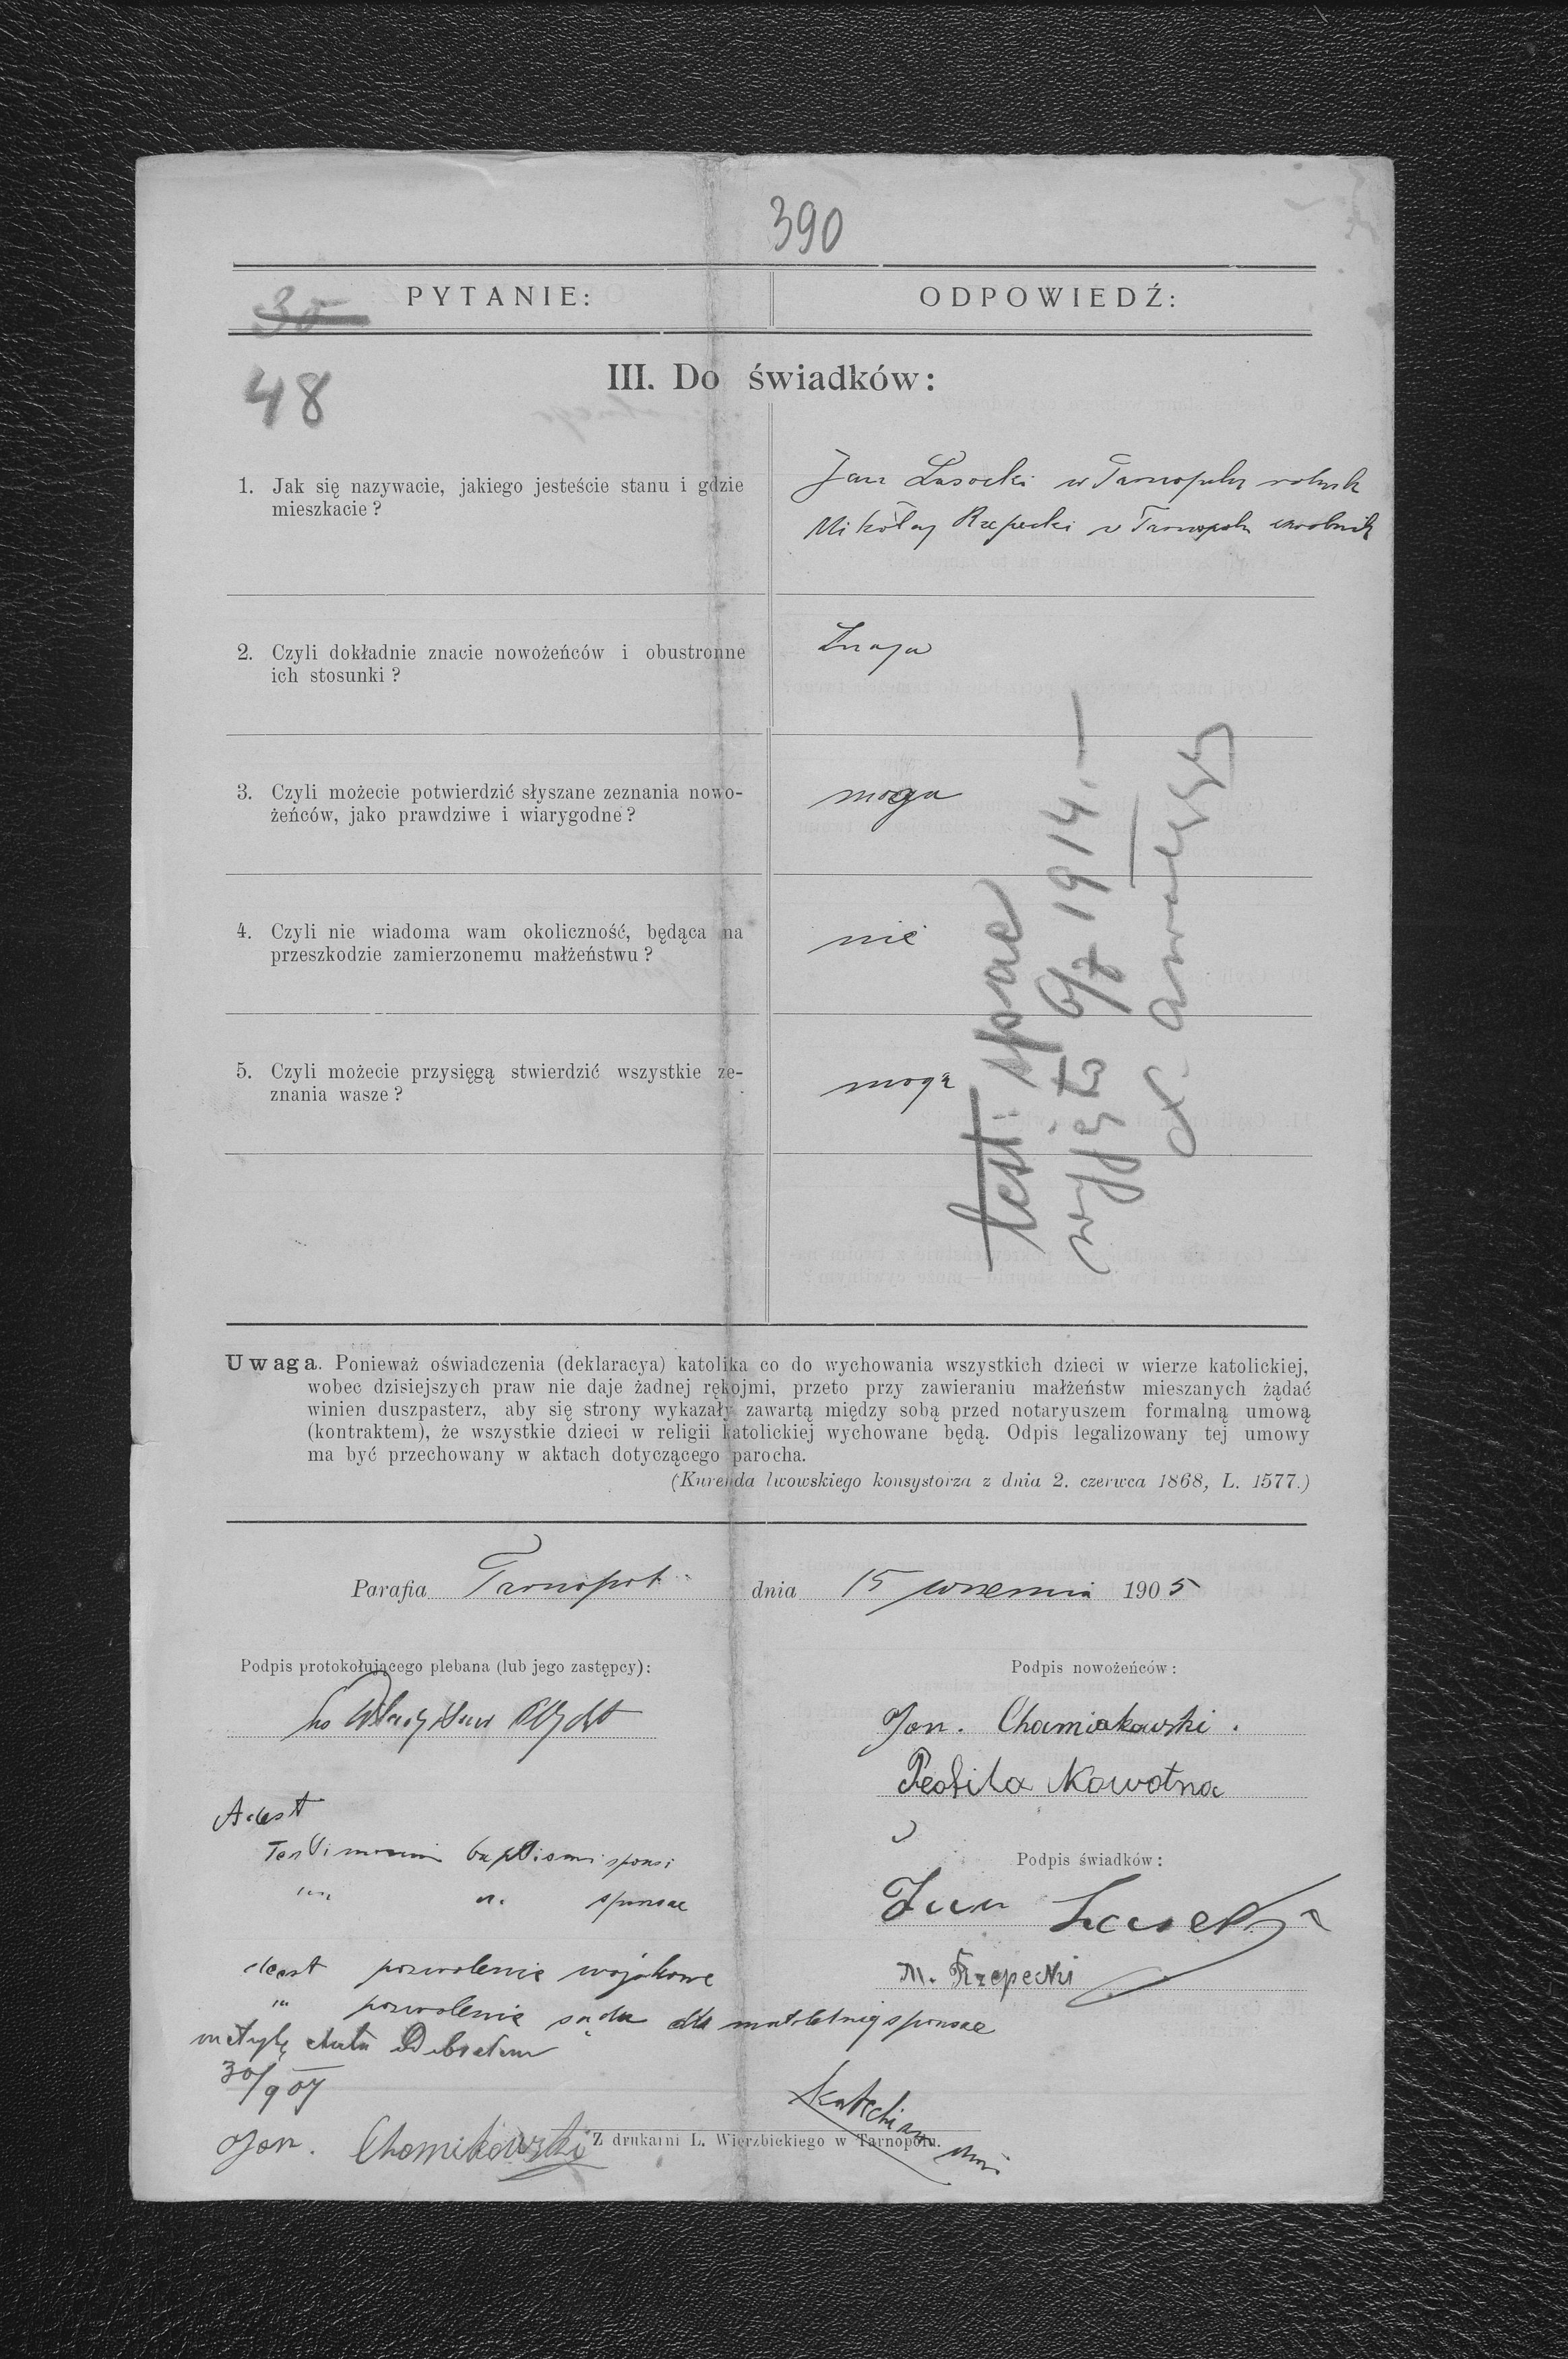 390
PYTANIE:
ODPOWIEDŹ:
30
48
III. Do świadków:
1. Jak się nazywacie, jakiego jesteście stanu i gdzie
mieszkacie?
Jan Lasocki w Tarnopolu
Mikołaj Rzepecki w Tarnopolu zarobnik
2. Czyli dokładnie znacie nowożeńców i obustronne
ich stosunki?
Znają
3. Czyli możecie potwierdzić słyszane zeznania nowo-
żeńców, jako prawdziwe i wiarygodne?
mogą
4. Czyli nie wiadoma wam okoliczność, będąca na
przeszkodzie zamierzonemu małżeństwu?
nie
5. Czyli możecie przysięgą stwierdzić wszystkie ze-
znania wasze?
mogą
test: spsae
wyjęto 6/7 1914.—
Uwaga. Ponieważ oświadczenia (deklaracya) katolika co do wychowania wszystkich dzieci w wierze katolickiej,
wobec dzisiejszych praw nie daje żadnej rękojmi, przeto przy zawieraniu małżeństw mieszanych żądać
winien duszpasterz, aby się strony wykazały zawartą między sobą przed notaryuszem formalną umową
(kontraktem), że wszystkie dzieci w religii katolickiej wychowane będą. Odpis legalizowany tej umowy
ma być przechowany w aktach dotyczącego parocha.
(Kurenda lwowskiego konsystorza z dnia 2. czerwca 1868, L. 1577.)
Parafia Tarnopol dnia 15 września 1905
Podpis protokołującego plebana (lub jego zastępcy):
Podpis nowożeńców:
Władysław
Jan. Chamiakowski.
Teofila Nowotna
Adest
Testimonium baptismi sponsi
" " sponsae
Podpis świadków:
Jan Lasocki
M. Rzepecki
deest pozwolenie wojskowe
" pozwolenie sądu dla małoletniej sponsae
metrykę chrztu odebrałem
30/907
Jan. Chomikowski
Z drukarni L. Wierzbickiego w Tarnopolu.